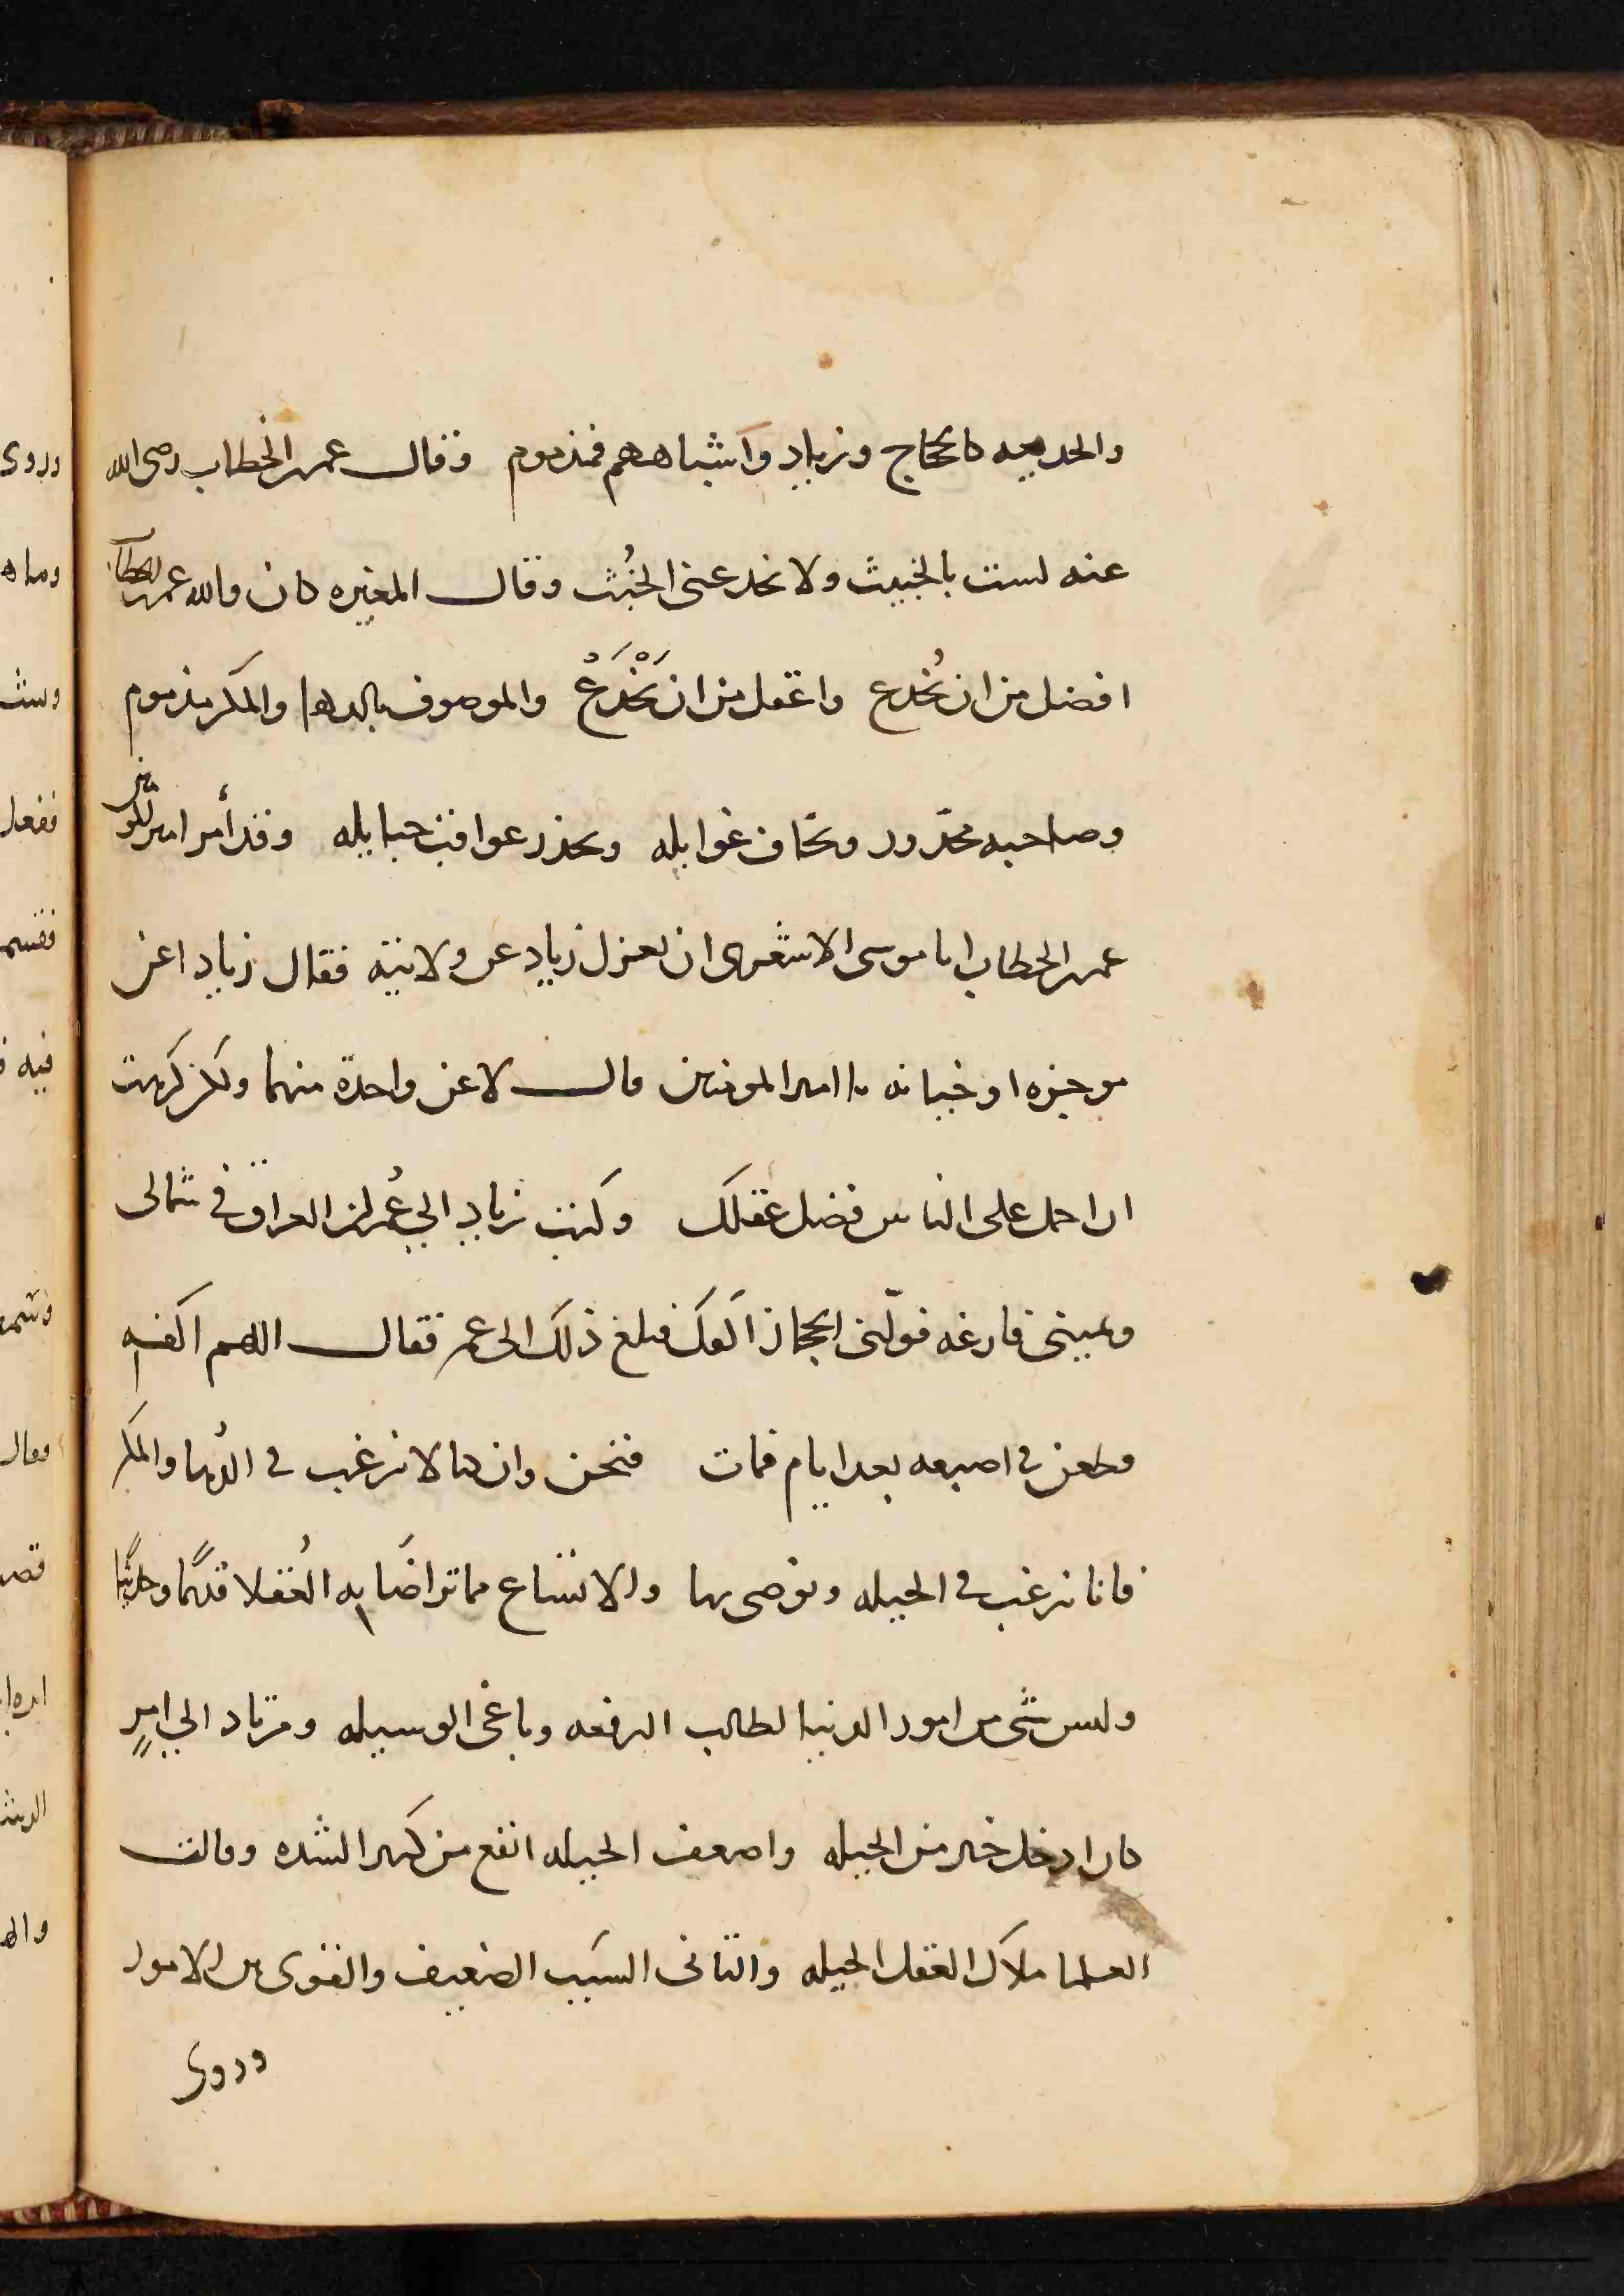 والخديعه كالحجاج وزياد وأشباههم فمذموم وقال عمر الخطاب رضى الله
عنه لست بالخبيث ولا يخدعنى الخُبث وقال المغيره كان والله عمر الخطاب
افضل من ان يُخدع واعقل من ان يَخْدَعُ والموصوف بالدها والمكر مذموم
وصاحبه محذور ويخاف غوايله ويحذر عواقب حبايله وقد أمر امير المومنين
عمر الخطاب ابا موسى الاشعرى ان يعزل زياد عن ولايته فقال زياد اعن
موجزه او خيانه يا امير المومنين قال لا عن واحدة منهما ولكن كرهت
ان احمل على الناس فضل عقلك وكتب زياد الي عُمر ان العراق في شمالى
ويمينى فارغه فولّنى الحجاز اكفك فبلغ ذلك الى عمر فقال اللهم اكفنيه
فطعن في اصبعه بعد ايام فمات فنحن وان كنا لا نرغب في الدُها والمكر
فانا نرغب في الحيله ونوصى بها والاتساع مما تواضَا به العُقلا قديمًا وحديثًا
وليس شى من امور الدنيا لطالب الرفعه وباغى الوسيله ومرتاد الي امرٍ
كان ادخل خير من الحيله واضعف الحيله انفع من كبير الشده وقالت
العلما ملاك العقل الحيله والتانى السبب الضعيف والقوى من الامور
وروى